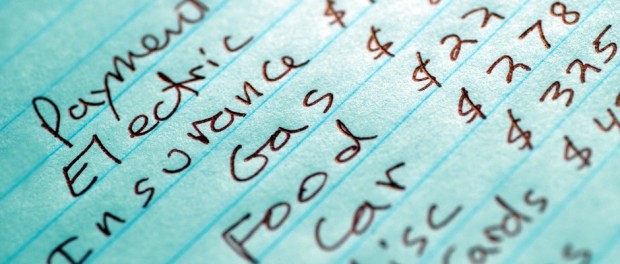 Payment
Electric
Insurance $
Gas $
Food $22
Car $278
isc $325
ards $4